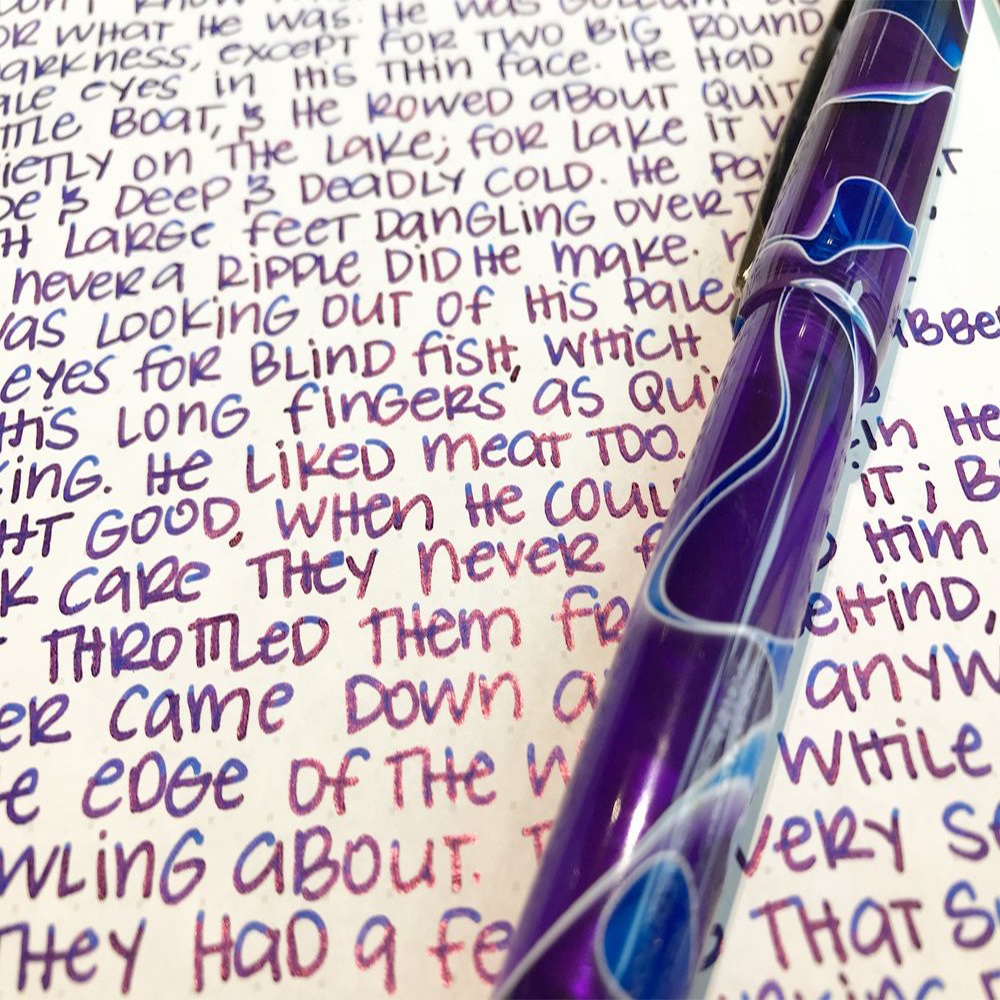 OR WHAT HE WAS. HE WAS GOLLUM
DARKNESS, EXCEPT FOR TWO BIG ROUND
EYES IN HIS THIN FACE. HE HAD a
BOAT, & HE ROWED ABOUT QUIT
IETLY ON THE LAKE; FOR LAKE IT
& DEEP & DEADLY COLD. HE
LARGE FEET DANGLING OVER T
NEVER A RIPPLE DID HE MAKE.
LOOKING OUT OF HIS PALE
EYES FOR BLIND FISH, WHICH BBE
HIS LONG FINGERS AS QUI
KING. HE LIKED MEAT TOO. IN HE
GOOD, WHEN HE COUL IT; B
K CARE THEY NEVER HIM
THROTTLED THEM FR EHIND,
ER CAME DOWN ANYW
EDGE OF THE W WHILE
WLING ABOUT. VERY S
THEY HAD A FE THAT S